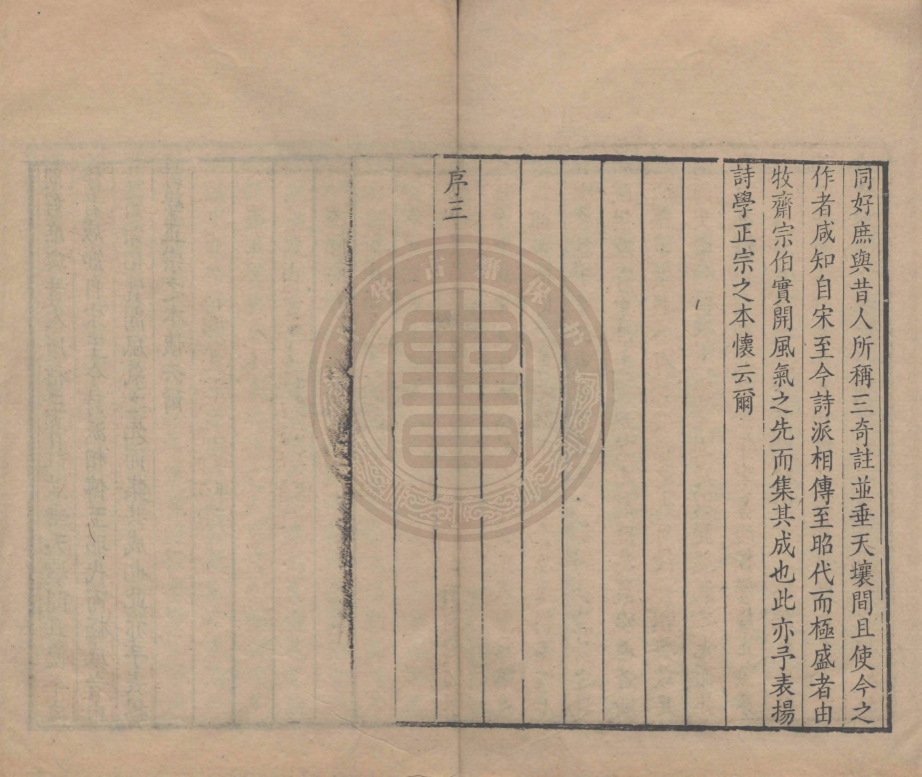 同好庶與昔人所稱三奇註並垂天壤間且使今之
作者咸知自宋至今詩派相傳至昭代而極盛者由
牧齋宗伯實開風氣之先而集其成也此亦予表揚
詩學正宗之本懷云爾
序三